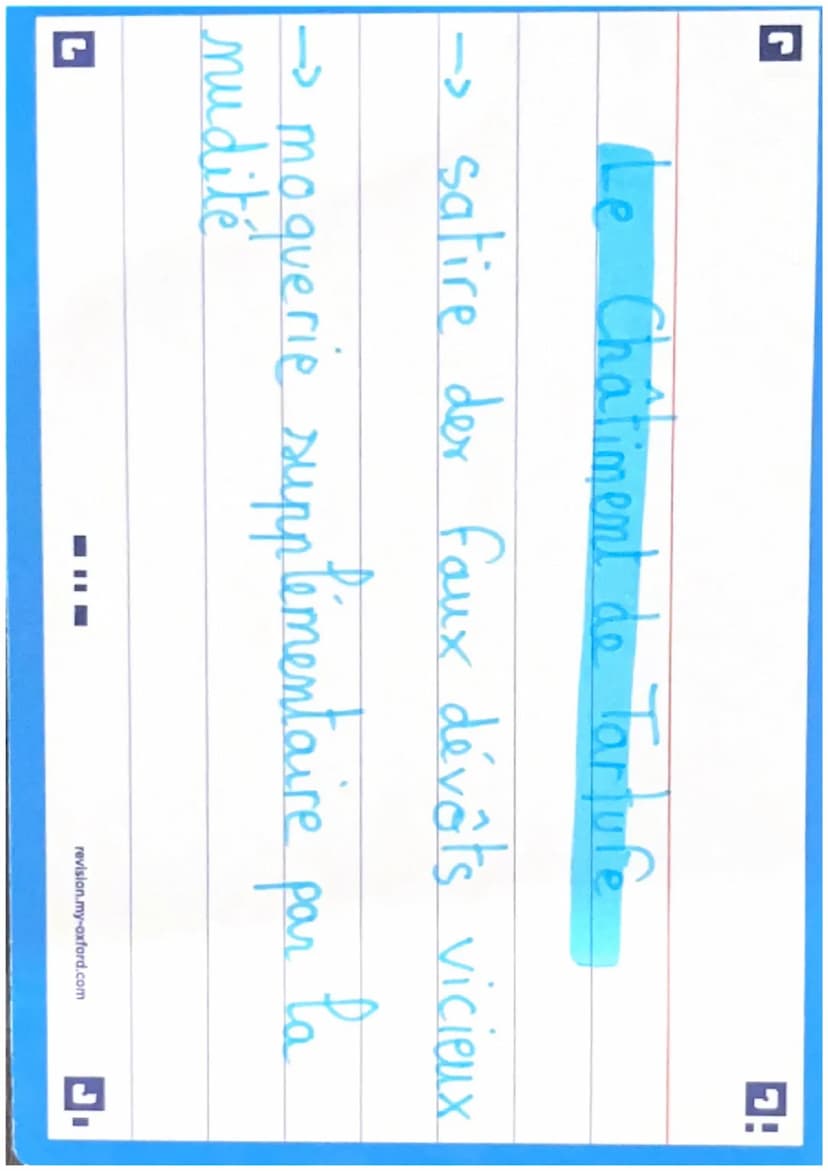 Le Châtiment de Tartufe
→ satire des faux dévôts vicieux
→ moquerie supplémentaire par la
nudité
revision.my-oxford.com